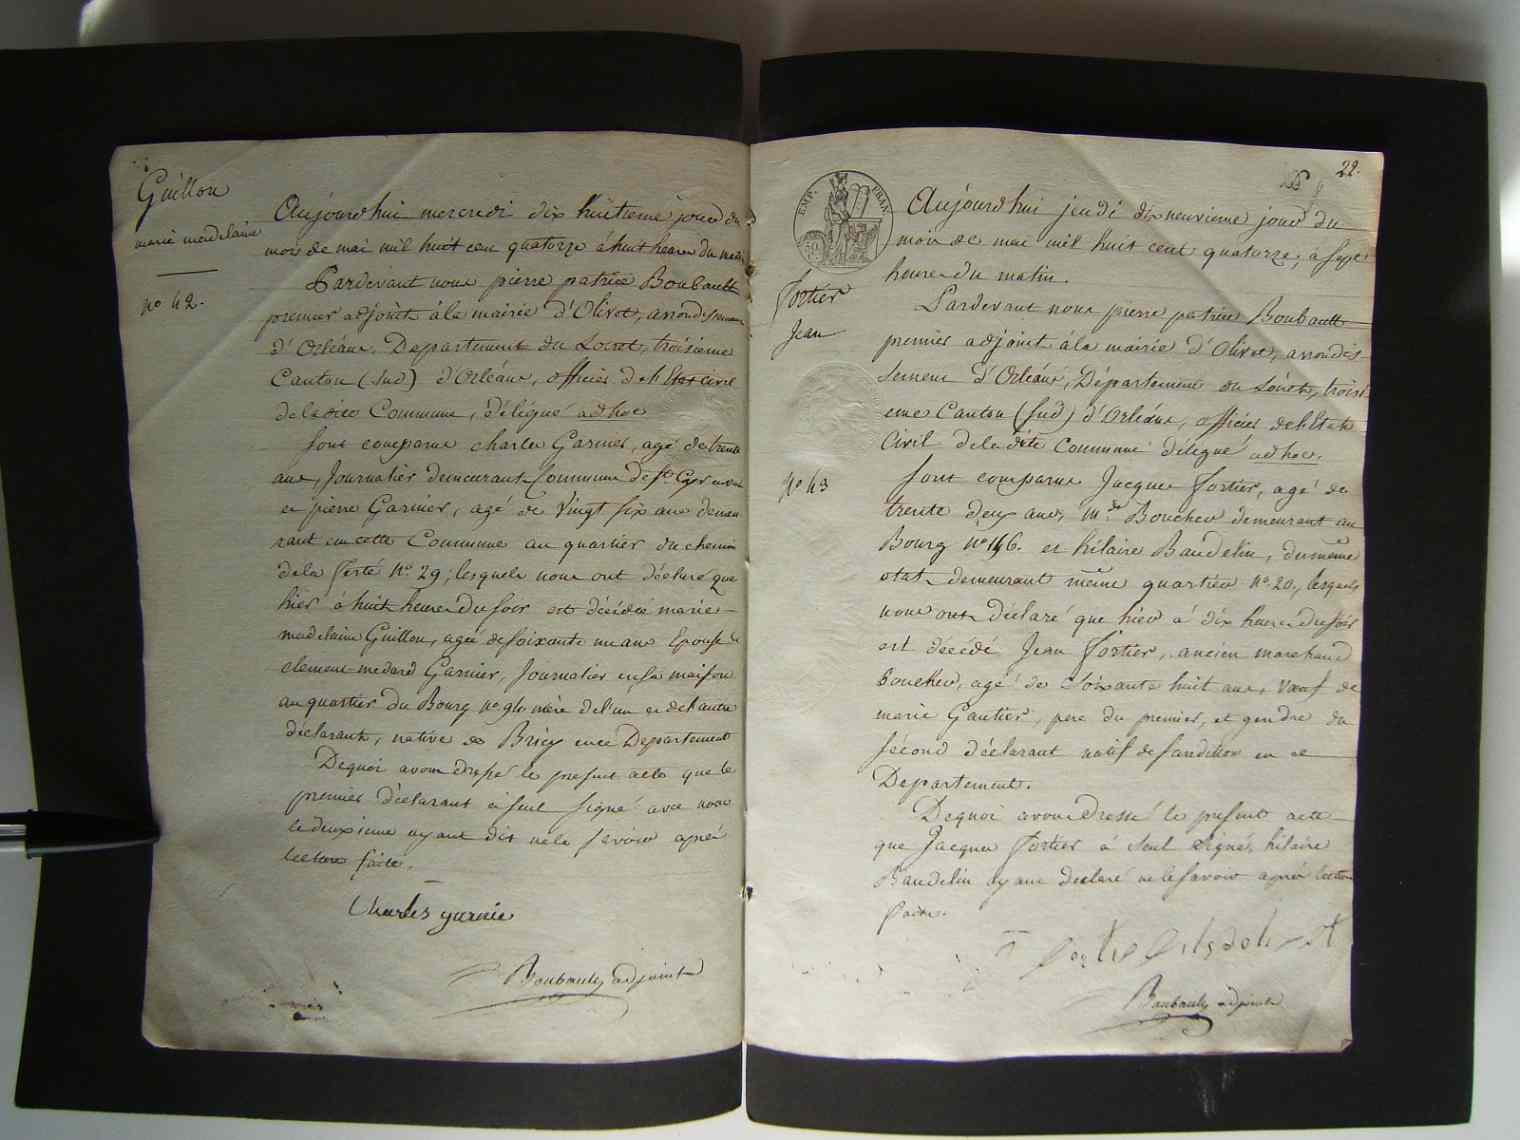 Guillon
marie madelaine
nº 42.
Aujourdhui mercredi dix huitieme jour du
mois de mai mil huit cen quatorze à huit heures du matin
Pardevant nous pierre patrice Boubault
premier adjoint à la mairie d'Olivet, arrondissement
d'Orléans, Departement du Loiret, troisieme
Canton (sud) d'Orléans, officier de l'Etat civil
de la dite Commune, délégué ad hoc
Sont comparus charles Garnier, agé de trente
ans, Journalier demeurant Commune de St Cyr en val
et pierre Garnier, agé de vingt six ans demeu
rant en cette Commune au quartier du chemin
de la ferté Nº 29; lesquels nous ont déclaré que
hier à huit heures du soir est décédée marie
madelaine Guillon, agée de soixante un ans Epouse de
clement medard Garnier, Journalier en sa maison
au quartier du Bourg nº mère de l'un et de l'autre
déclarants, native de Bricy en ce Departement
Dequoi avons dressé le present acte que le
premier déclarant à seul signé avec nous
le deuxieme ayant dit ne le savoir après
lecture faite.
Charles garnie
Boubault adjoint
22.
EMP. FRAN
Fortier
Jean
nº 43
Aujourdhui jeudi dix neuvieme jour du
mois de mai mil huit cent quatorze, à sept
heures du matin.
Pardevant nous pierre patrice Boubault
premier adjoint à la mairie d'Olivet, arrondis
sement d'Orléans, Département du Loiret, troisi
eme Canton (sud) d'Orléans, officier de l'Etat
Civil de la dite Commune délégué ad hoc.
Sont comparus Jacques Fortier, agé de
trente deux ans, md Boucher demeurant au
Bourg nº 146. et hilaire Baudelin, du même
etat demeurant même quartier nº 20, lesquels
nous ont déclaré que hier à dix heures du soir
est décédé Jean Fortier, ancien marchand
boucher, agé de soixante huit ans, veuf de
marie Gautier, pere du premier, et gendre du
second déclarant natif de sandillon en ce
Departement.
Dequoi avons dressé le present acte
que Jacques Fortier à seul signé, hilaire
Baudelin ayant declaré ne le savoir après lecture
faite.
Boubault adjoint